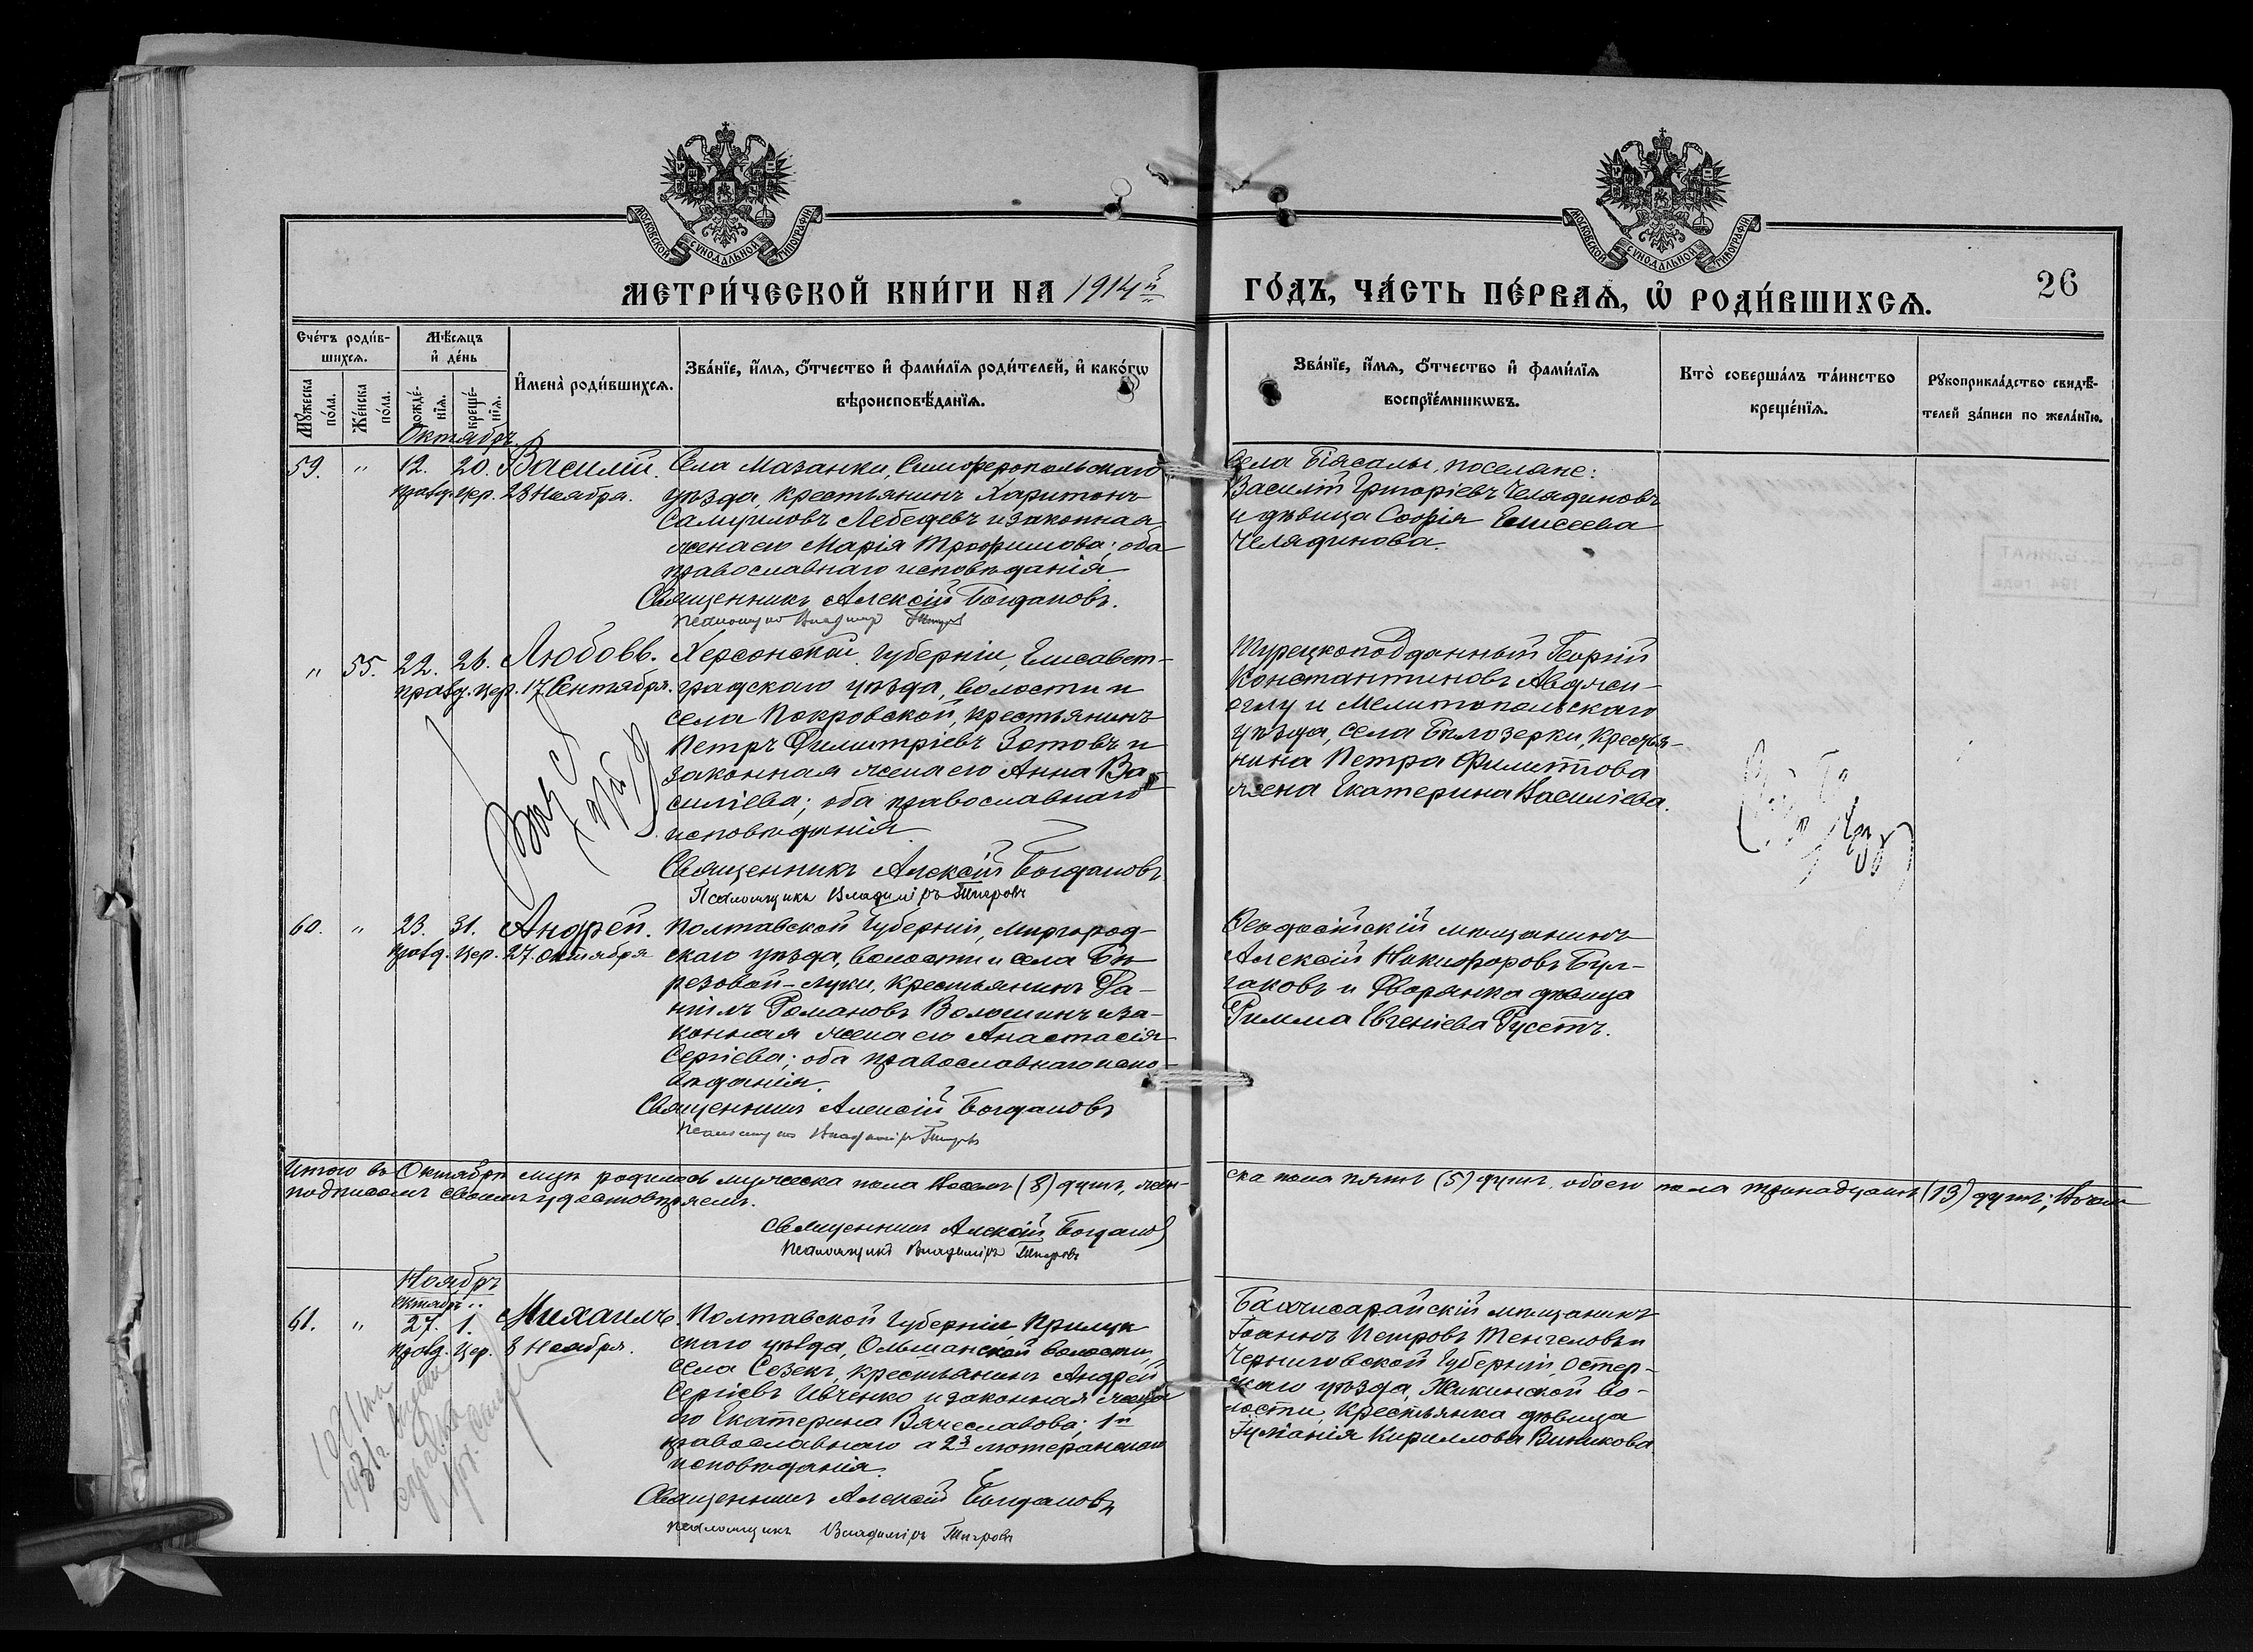 МОСКОВСКОЙ СУНОДАЛЬНОЙ ТИПОГРАФІИ
МОСКОВСКОЙ СУНОДАЛЬНОЙ ТИПОГРАФІИ
МЕТРИ́ЧЕСКОЙ КНИ́ГИ НА 1914й
ГО́ДЪ, ЧА́СТЬ ПЕ́РВАѦ, Ѡ҆ РОДИ́ВШИХСѦ.
26
Сче́тъ роди́в-
шихсѧ.
Мꙋ́жеска по́ла.
Же́нска по́ла.
Мѣ́сѧцъ
и҆ де́нь
рожде́-
нїѧ.
креще́-
нїѧ.
И҆мена̀ роди́вшихсѧ.
Зва́нїе, и҆́мѧ, ѻ҆́тчество и҆ фами́лїѧ роди́телей, и҆ како́гѡ
вѣроисповѣ́данїѧ.
Зва́нїе, и҆́мѧ, ѻ҆́тчество и҆ фами́лїѧ
воспрїе́мникѡвъ.
Кто̀ соверша́лъ та́инство
креще́нїѧ.
Рꙋкоприкла́дство свидѣ́-
телей за́писи по жела́нїю.
Октябрь.
59. " 12. 20. Василій. Села Мазанки, Симферопольскаго
правд. цер. 28 Ноября. уѣзда, крестьянинъ Харитонъ
Самуиловъ Лебедевъ и законная
жена его Марія Трофимова; оба
православнаго исповѣданія.
Священникъ Алексій Богдановъ.
Псаломщикъ Владиміръ Тигровъ
Села Біясалы, поселяне:
Василій Григоріевъ Челядиновъ
и дѣвица Софія Елисеева
Челядинова.
" 55. 22. 26. Любовь. Херсонской Губерніи, Елисавет-
правд. цер. 17 Сентября. градскаго уѣзда, волости и
села Покровской, крестьянинъ
Петръ Димитріевъ Зотовъ и
законная жена его Анна Ва-
силіева; оба православнаго
исповѣданія.
Священникъ Алексій Богдановъ.
Псаломщикъ Владиміръ Тигровъ
Турецкоподданный Георгій
Константиновъ
оглу и Мелитопольскаго
уѣзда, села Бѣлозерки, крестья-
нина Петра Филиппова
жена Екатерина Василіева.
60. " 23. 31. Андрей. Полтавской Губерніи, Миргород-
правд. цер. 27 Октября скаго уѣзда, волости и села Бе-
резовой-луки, крестьянинъ Да-
ніилъ Романовъ Волошинъ и за-
конная жена его Анастасія
Сергіева; оба православнаго испо-
вѣданія.
Священникъ Алексій Богдановъ
Псаломщикъ Владиміръ Тигровъ
Ѳеодосійскій мѣщанинъ
Алексій Никифоровъ Бул-
гаковъ и Дворянка дѣвица
Римма Евгеніева Руссетъ.
Итого въ Октябрѣ мцѣ родилось мужеска пола восемь (8) душъ, жен-
ска пола пять (5) душъ, обоего пола тринадцать (13) душъ;
подписомъ своимъ удостовѣряемъ.
Священникъ Алексій Богдановъ
Псаломщикъ Владиміръ Тигровъ
Ноябрь
октябрь
61. " 27. 1. Михаилъ. Полтавской Губерніи, Прилук-
правд. цер. 8 Ноября. скаго уѣзда, Ольшанской волости,
села Сезекъ, крестьянинъ Андрей
Сергіевъ Ивченко и законная жена
его Екатерина Вячеславова; 1й
православнаго а 2я лютеранскаго
исповѣданія.
Священникъ Алексій Богдановъ
Псаломщикъ Владиміръ Тигровъ
Бахчисарайскій мѣщанинъ
Іоаннъ Петровъ Тенгеловъ и
Черниговской Губерніи, Остер-
скаго уѣзда, Жукинской во-
лости, крестьянка дѣвица
Кириллова Виникова
1931г.